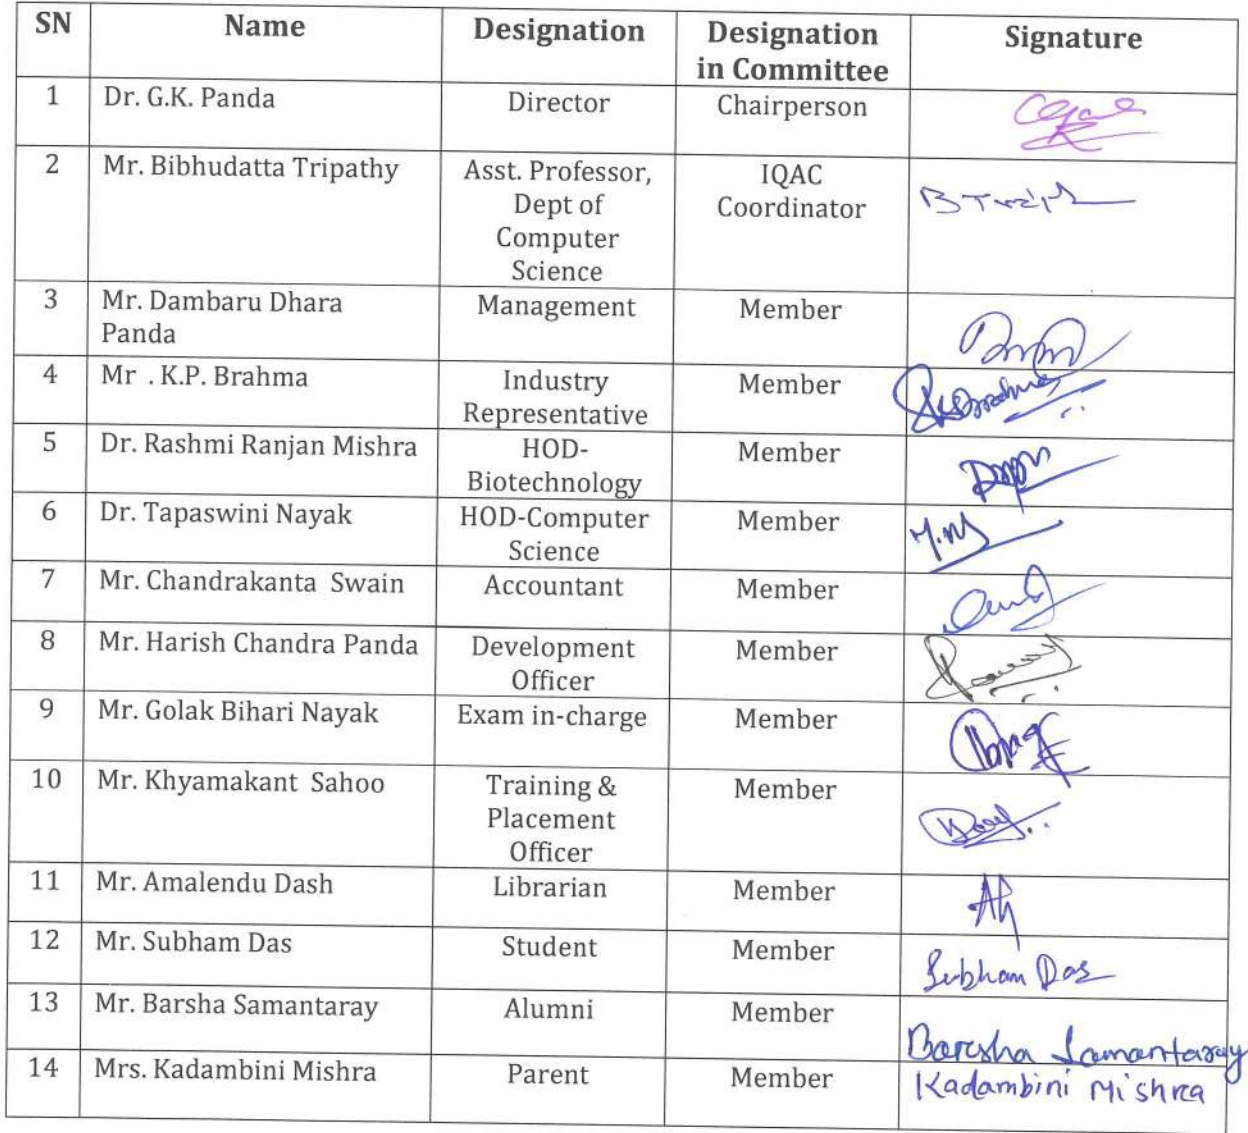 SN Name Designation Designation in Committee Signature
1 Dr. G.K. Panda Director Chairperson
2 Mr. Bibhudatta Tripathy Asst. Professor, Dept of Computer Science IQAC Coordinator
3 Mr. Dambaru Dhara Panda Management Member
4 Mr . K.P. Brahma Industry Representative Member
5 Dr. Rashmi Ranjan Mishra HOD-Biotechnology Member
6 Dr. Tapaswini Nayak HOD-Computer Science Member
7 Mr. Chandrakanta Swain Accountant Member
8 Mr. Harish Chandra Panda Development Officer Member
9 Mr. Golak Bihari Nayak Exam in-charge Member
10 Mr. Khyamakant Sahoo Training & Placement Officer Member
11 Mr. Amalendu Dash Librarian Member
12 Mr. Subham Das Student Member Subham Das
13 Mr. Barsha Samantaray Alumni Member Barsha Samantaray
14 Mrs. Kadambini Mishra Parent Member Kadambini Mishra